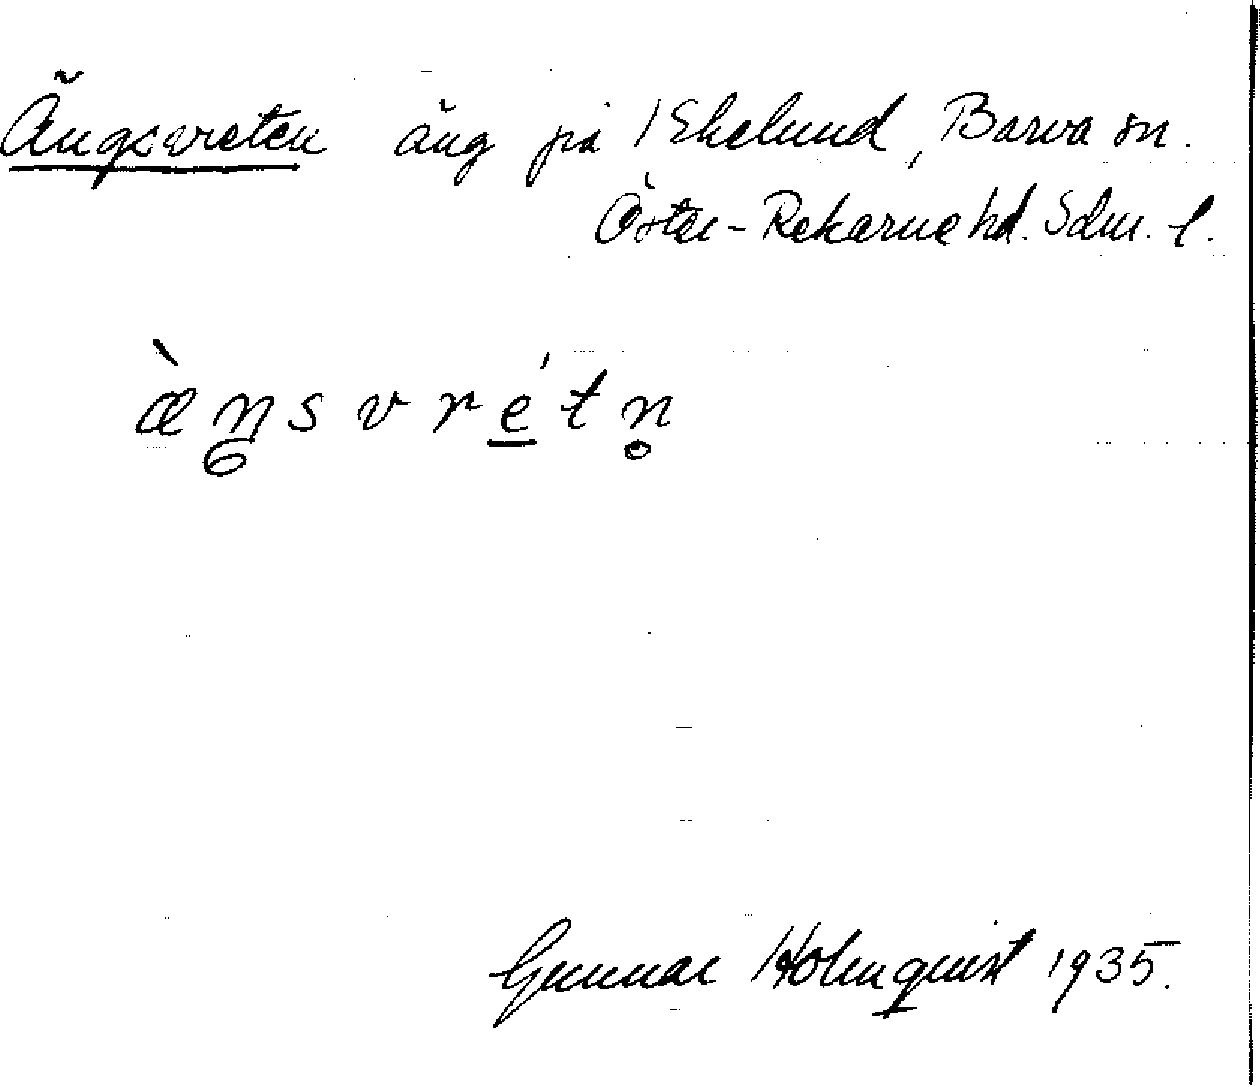 Ängsvreten äng på 1 Ekelund, Barva sn.
Öster-Rekarne hd. Sdm. l.
æ̀ŋsvré̲tn̥
Gunnar Holmquist 1935.